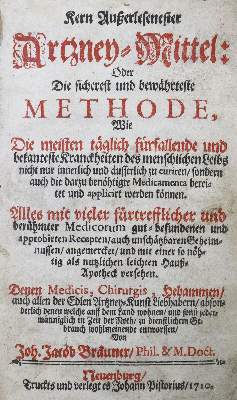 Kern Außerlesenester
Artzney-Mittel:
Oder
Die sicherest und bewährteste
METHODE,
Wie
Die meisten täglich fürfallende und
bekanteste Kranckheiten des menschlichen Leibs
nicht nur innerlich und äusserlich zu curiren/ sondern
auch die darzu benöhtigte Medicamenta berei-
tet und applicirt werden können.
Alles mit vieler fürtrefflicher und
berühmter Medicorum gut-befundenen und
approbirten Recepten/ auch unschätzbaren Geheim-
nussen/ angemercket/ und mit einer so nöh-
tig als nutzlichen leichten Hauß-
Apotheck versehen.
Denen Medicis, Chirurgis, Hebammen/
auch allen der Edlen Artzney-Kunst Liebhabern/ abson-
derlich denen welche auf dem Land wohnen/ und sonst jeder-
männiglich in Zeit der Noth/ zu dienstlichem Ge-
brauch wohlmeinende entworffen/
Von
Joh. Jacob Bräuner/ Phil. & M. Doct.
Neuenburg/
Truckts und verlegt es Johann Pistorius/ 1710.